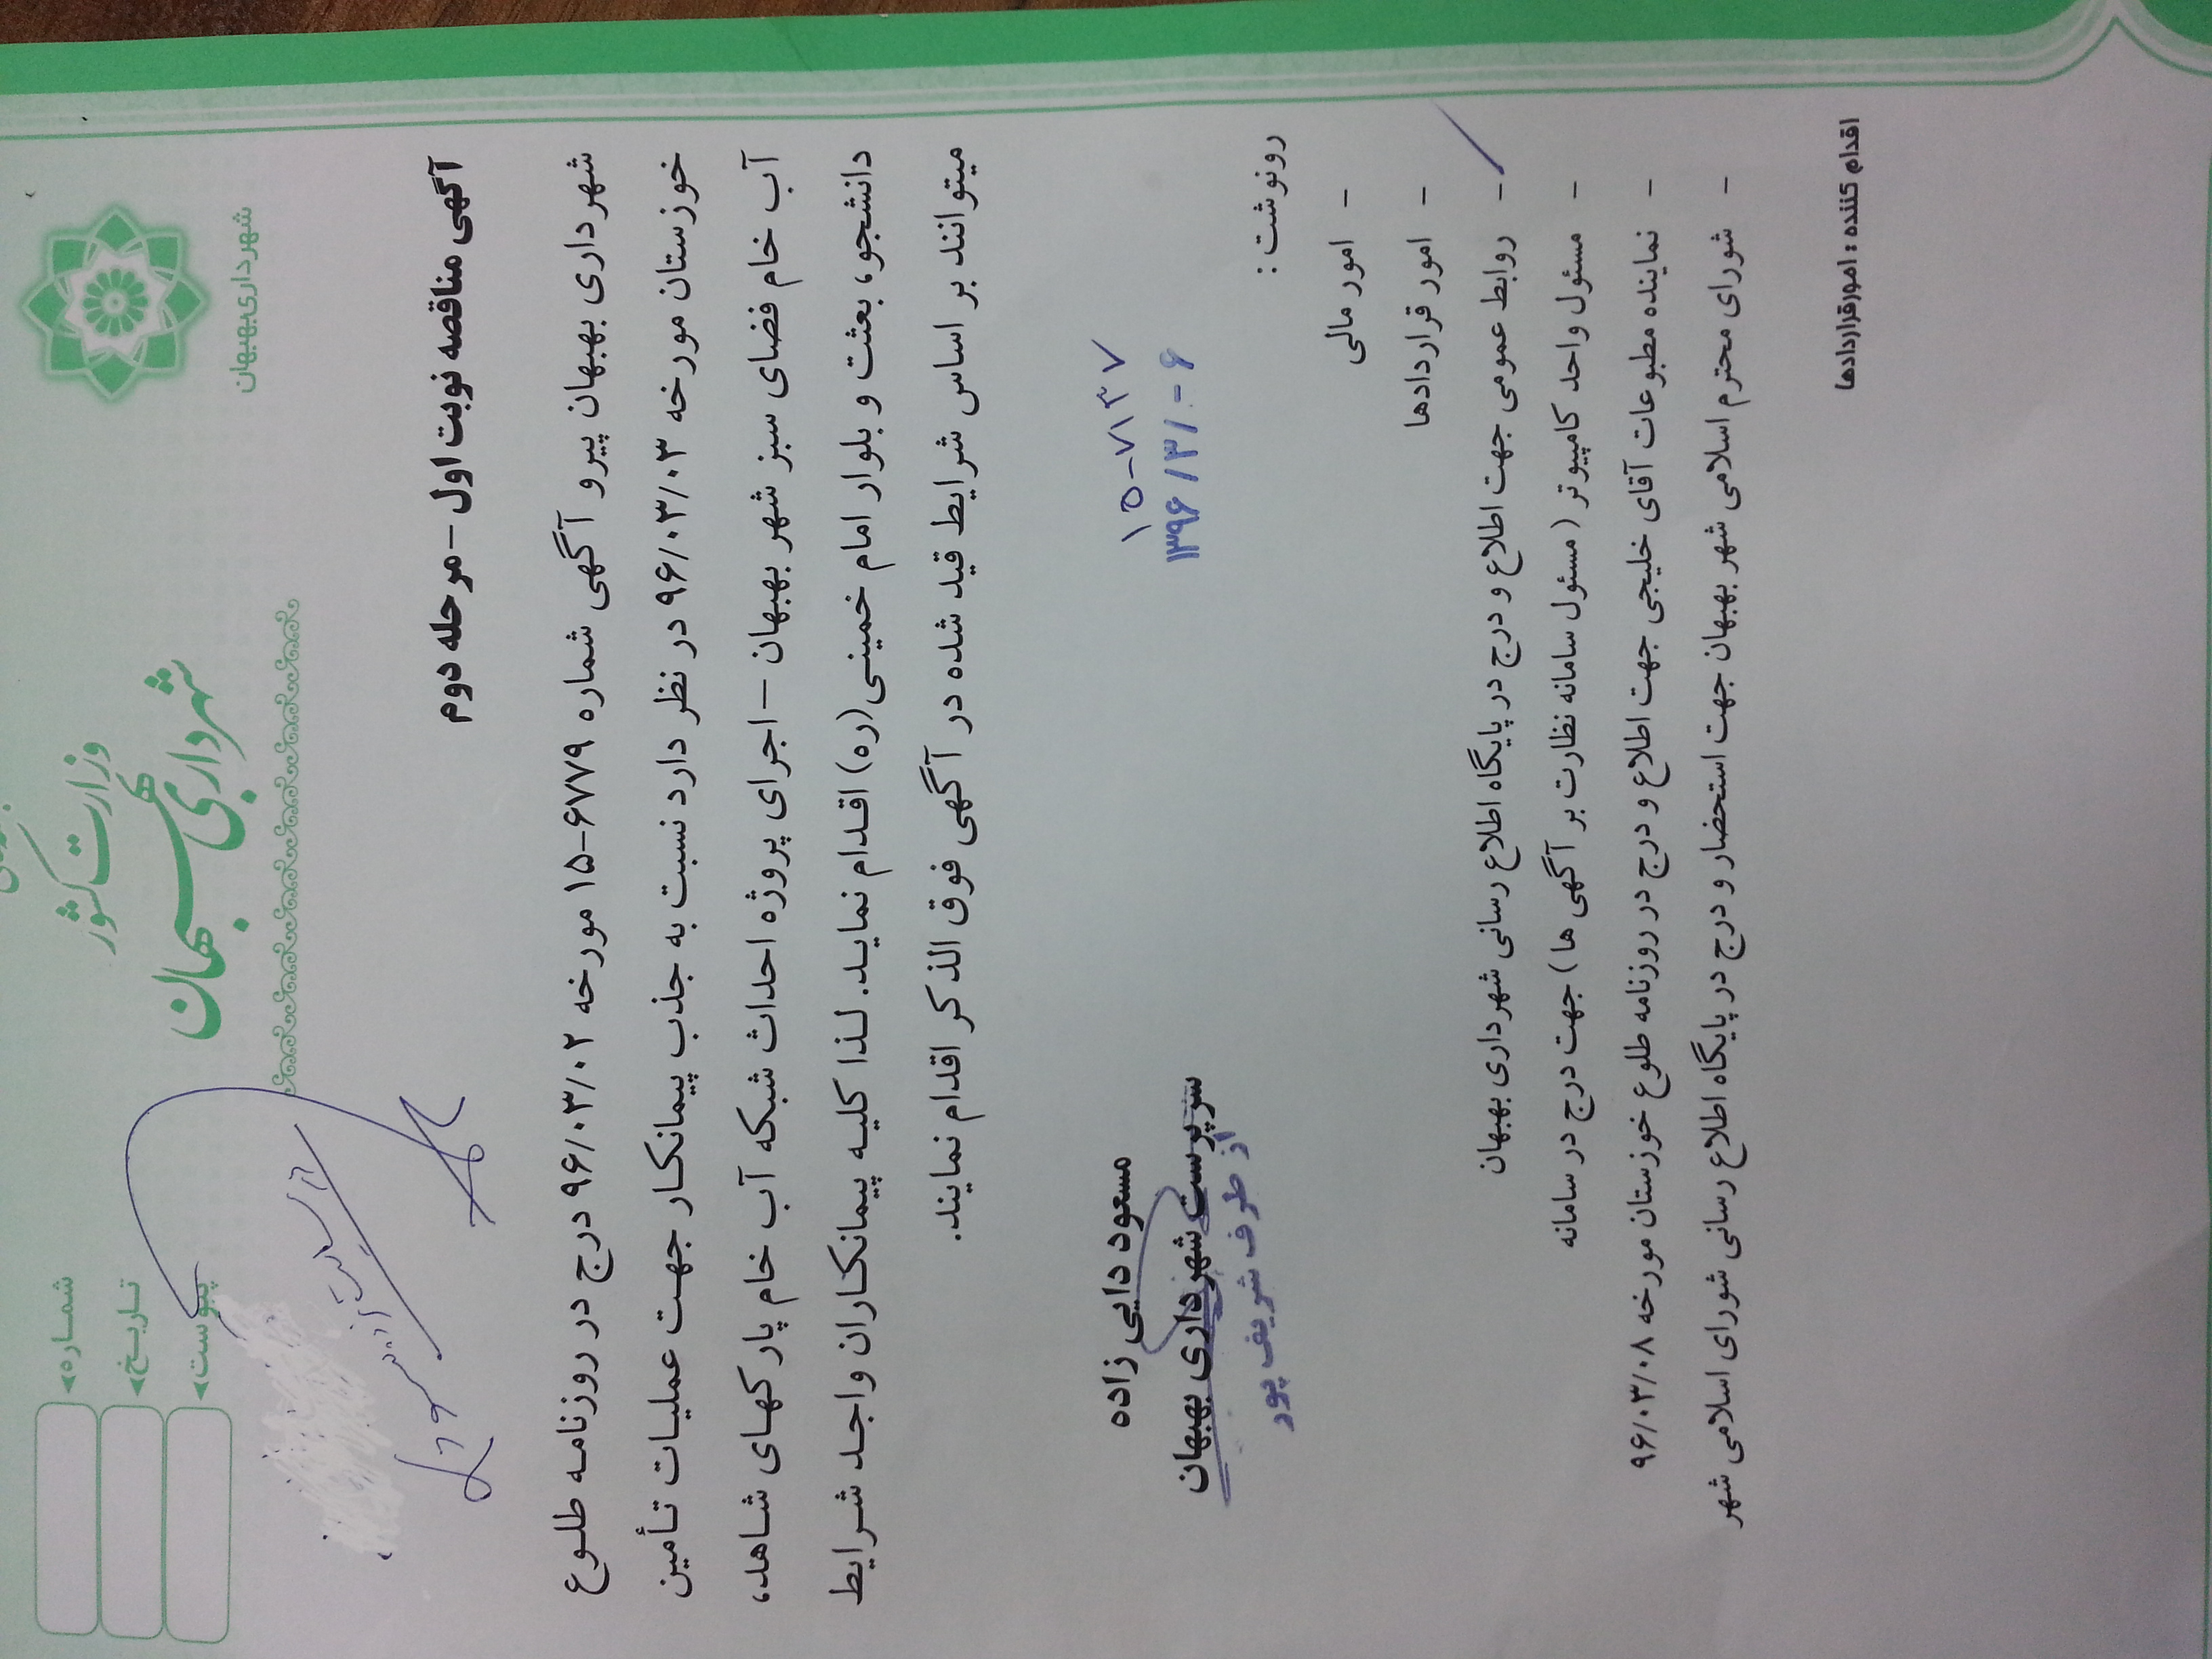 وزارت کشور
شهرداری بهبهان
شهرداری بهبهان
شماره
تاریخ
پیوست
آگهی مناقصه نوبت اول – مرحله دوم
شهرداری بهبهان پیرو آگهی شماره ۶۷۷۹-۱۵ مورخه ۹۶/۰۳/۰۲ درج در روزنامه طلوع
خوزستان مورخه ۹۶/۰۳/۰۳ در نظر دارد نسبت به جذب پیمانکار جهت عملیات تأمین
آب خام فضای سبز شهر بهبهان – اجرای پروژه احداث شبکه آب خام پارکهای شاهد،
دانشجو، بعثت و بلوار امام خمینی(ره) اقدام نماید. لذا کلیه پیمانکاران واجد شرایط
میتوانند بر اساس شرایط قید شده در آگهی فوق الذکر اقدام نمایند.
۱۵-۷۱۳۷
۱۳۹۶/۳/۰۶
مسعود دایی زاده
سرپرست شهرداری بهبهان
از طرف شریف پور
رونوشت :
- امور مالی
- امور قراردادها
- روابط عمومی جهت اطلاع و درج در پایگاه اطلاع رسانی شهرداری بهبهان
- مسئول واحد کامپیوتر (مسئول سامانه نظارت بر آگهی ها) جهت درج در سامانه
- نماینده مطبوعات آقای خلیجی جهت اطلاع و درج در روزنامه طلوع خوزستان مورخه ۹۶/۰۳/۰۸
- شورای محترم اسلامی شهر بهبهان جهت استحضار و درج در پایگاه اطلاع رسانی شورای اسلامی شهر
اقدام کننده : امورقراردادها